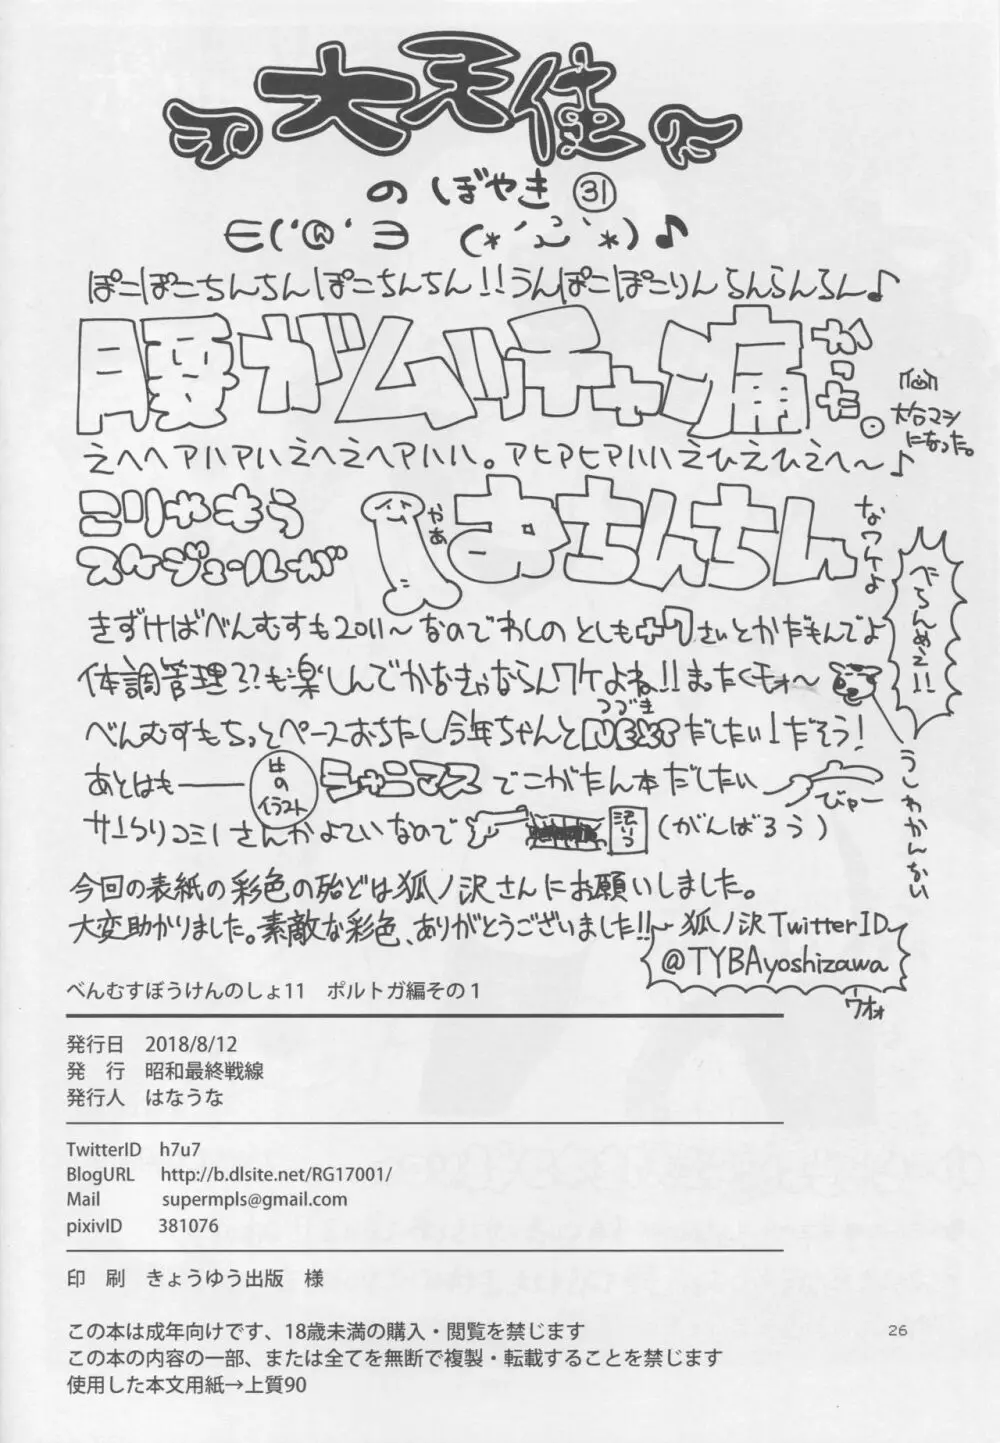 大天使
のぼやき 31
ぽこぽこちんちんぽこちんちん!!うんぽこぽこりんらんらんらん♪
腰がムッチャ痛かった。
大台マシになった。
えへへアハアハえへえへアハハハ。アヒアヒアハハハえひえひえへ〜♪
こりゃもう
スケジュールが
やあ
おちんちん
なワケよ
べらんめえ!!
きずけばべんむすも2011〜なのでわしのとしも+7さいとかだもんでよ
体調管理??も楽しんでかなきゃならんワケよね!!まったくモォ〜
うしわかんない
つづき
べんむすもちっとペースおちたし今年ちゃんとNEXTだしたい!だそう!
あとはも――
件のイラスト
シャニマスでこがたん本だしたい
びゃー
サークリコミ1さんかよていなので
(がんばろう)
今回の表紙の彩色の殆どは狐ノ沢さんにお願いしました。
大変助かりました。素敵な彩色、ありがとうございました!!
狐ノ沢TwitterID
@TYBAyoshizawa
ワオォ
べんむすぼうけんのしょ11 ポルトガ編その1
発行日 2018/8/12
発 行 昭和最終戦線
発行人 はなうな
TwitterID h7u7
BlogURL http://b.dlsite.net/RG17001/
Mail supermpls@gmail.com
pixivID 381076
印 刷 きょうゆう出版 様
この本は成年向けです、18歳未満の購入・閲覧を禁じます
この本の内容の一部、または全てを無断で複製・転載することを禁じます
使用した本文用紙→上質90
26